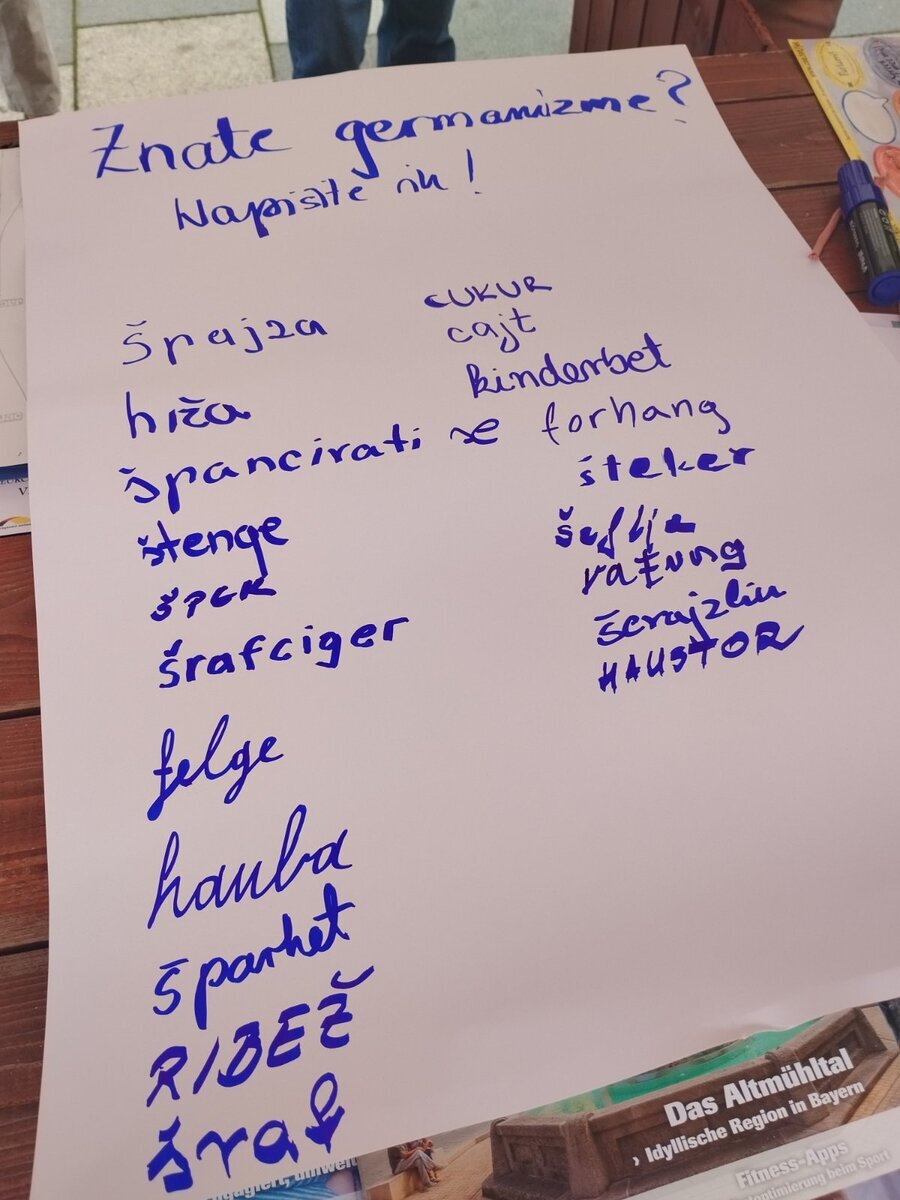 Znate germanizme?
Napišite ih!
špajza
hiža
špancirati se
štenge
ŠPEK
šrafciger
felge
hauba
šparhet
RIBEŽ
šraf
CUKUR
cajt
kinderbet
forhang
šteker
šeflja
ratung
HAUSTOR
Das Altmühltal
› Idyllische Region in Bayern
Fitness-Apps
beim Sport